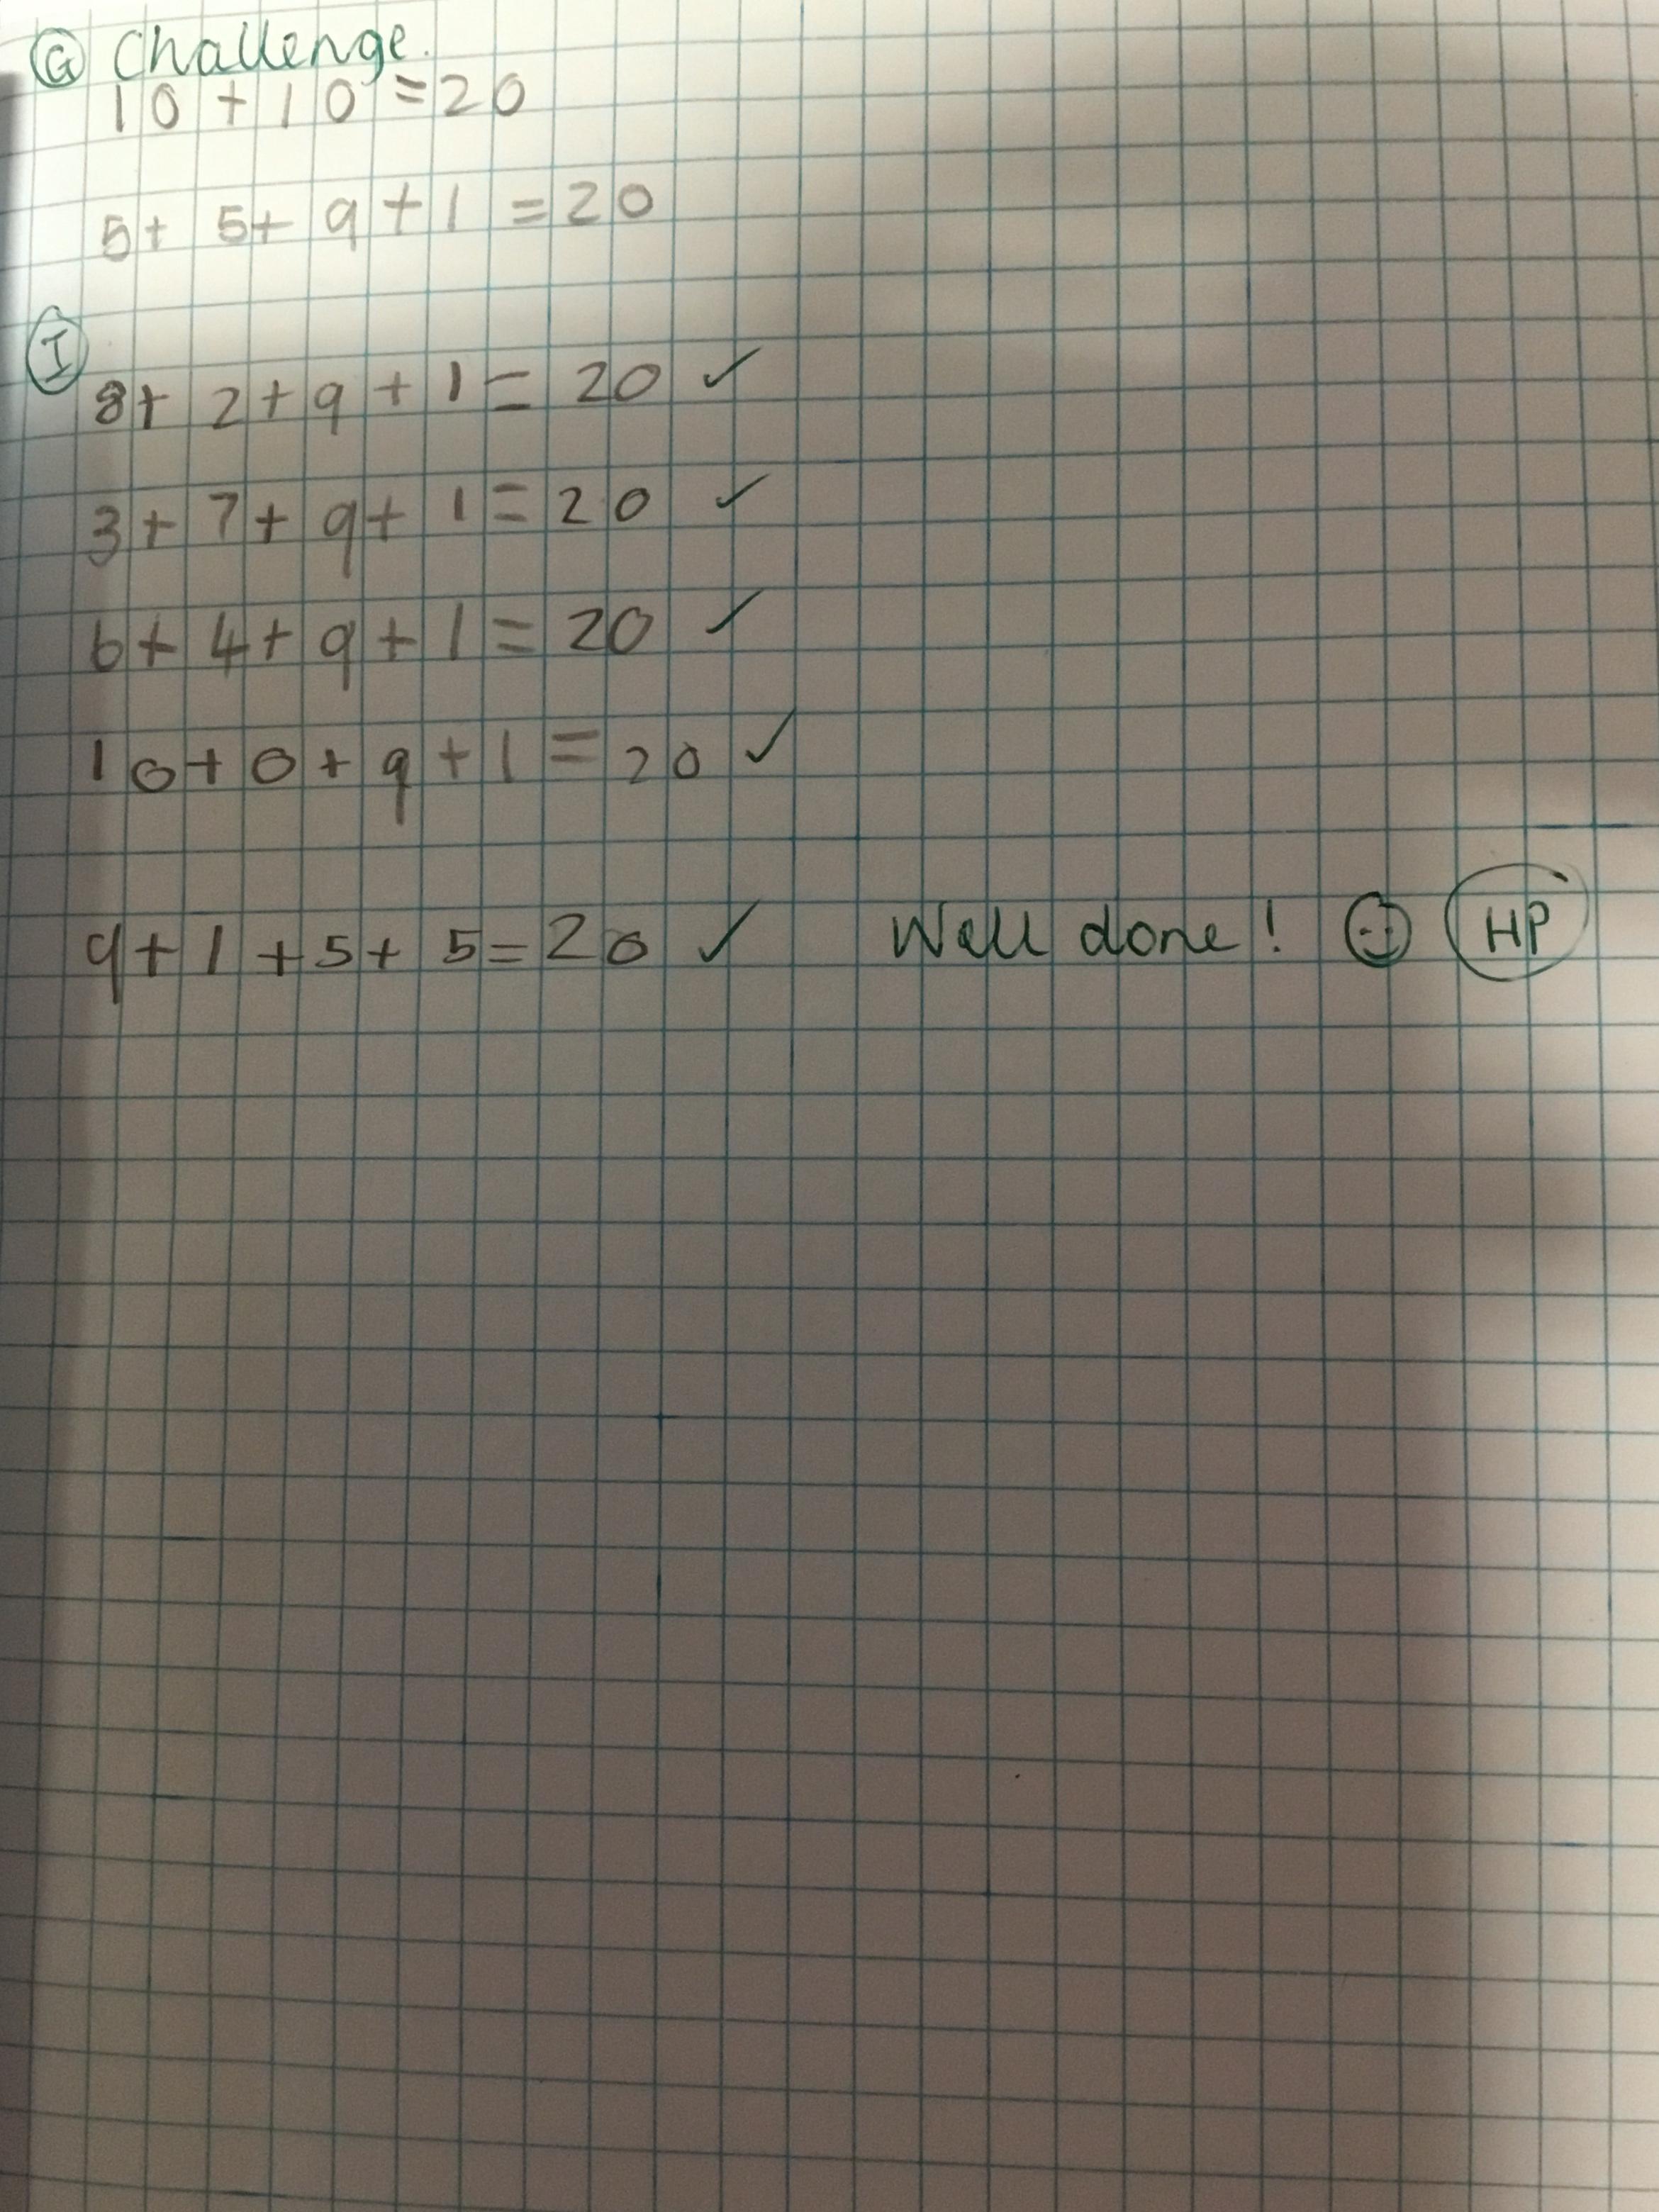 G Challenge.
10+10=20
5+5+9+1=20
I
8+2+9+1=20 ✓
3+7+9+1=20 ✓
6+4+9+1=20 ✓
10+0+9+1=20 ✓
9+1+5+5=20 ✓ Well done! ☺ HP